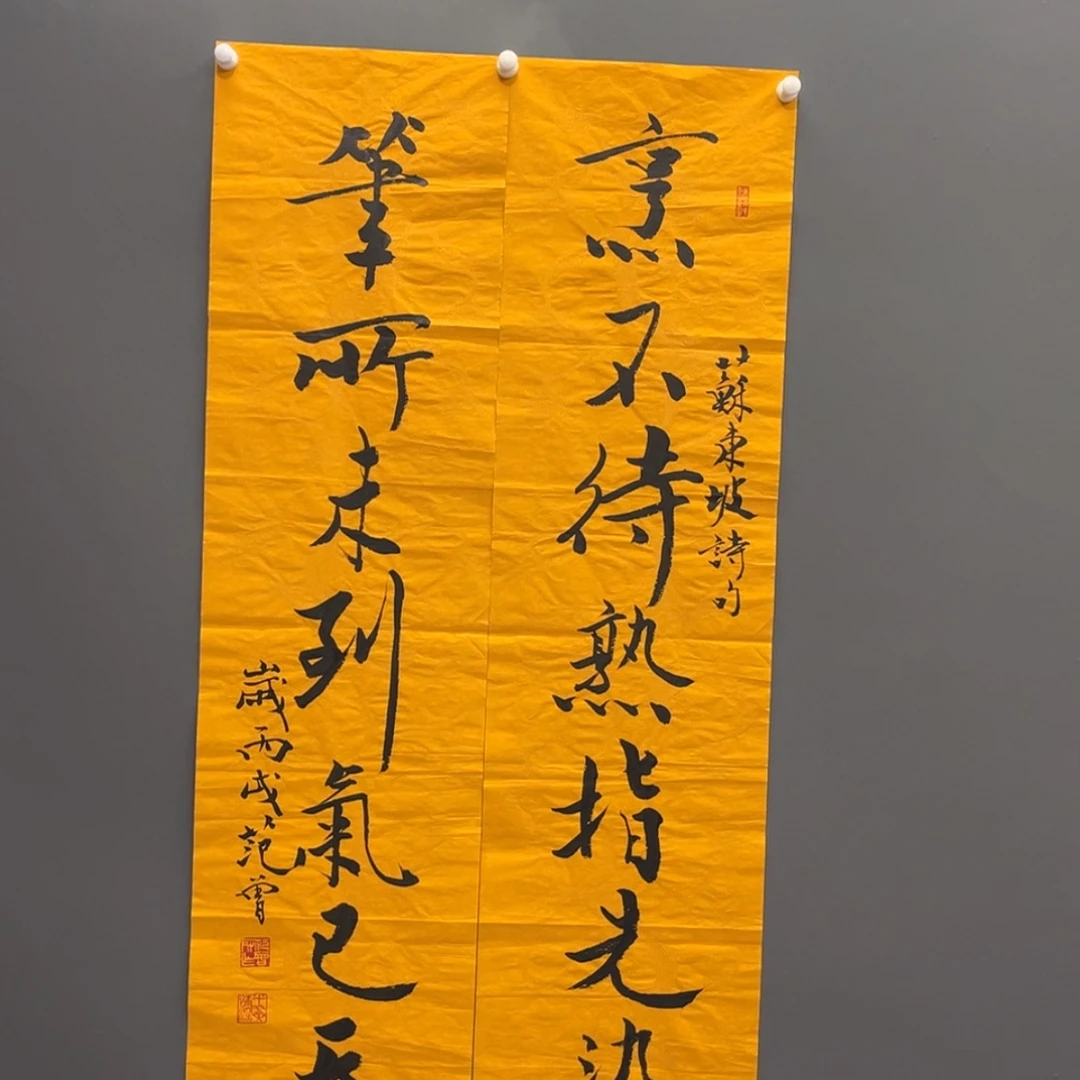 蘇東坡詩句
烹不待熟指先染
筆所未到氣已吞
歲丙戌范曾